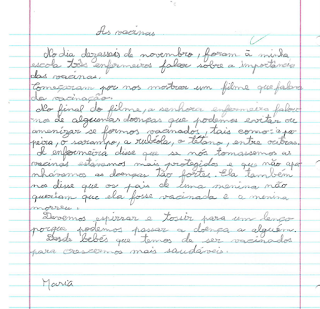 As vacinas
No dia dezasseis de novembro, foram à minha
escola três enfermeiras falar sobre a importância
das vacinas.
Começaram por nos mostrar um filme que falava
da vacinação.
No final do filme, a senhora enfermeira falou-
-nos de algumas doenças que podemos evitar ou
amenizar se formos vacinados, tais como: a pa-
peira, o sarampo, a rubéola, o tétano, entre outras.
A enfermeira disse que se nós tomarmos as
vacinas estaremos mais protegidos e que não apa-
nhávamos as doenças tão fortes. Ela também
nos disse que os pais de uma menina não
queriam que ela fosse vacinada e a menina
morreu.
Devemos espirrar e tossir para um lenço
porque podemos passar a doença a alguém.
Desde bebés que temos de ser vacinados
para crescermos mais saudáveis.
Maria